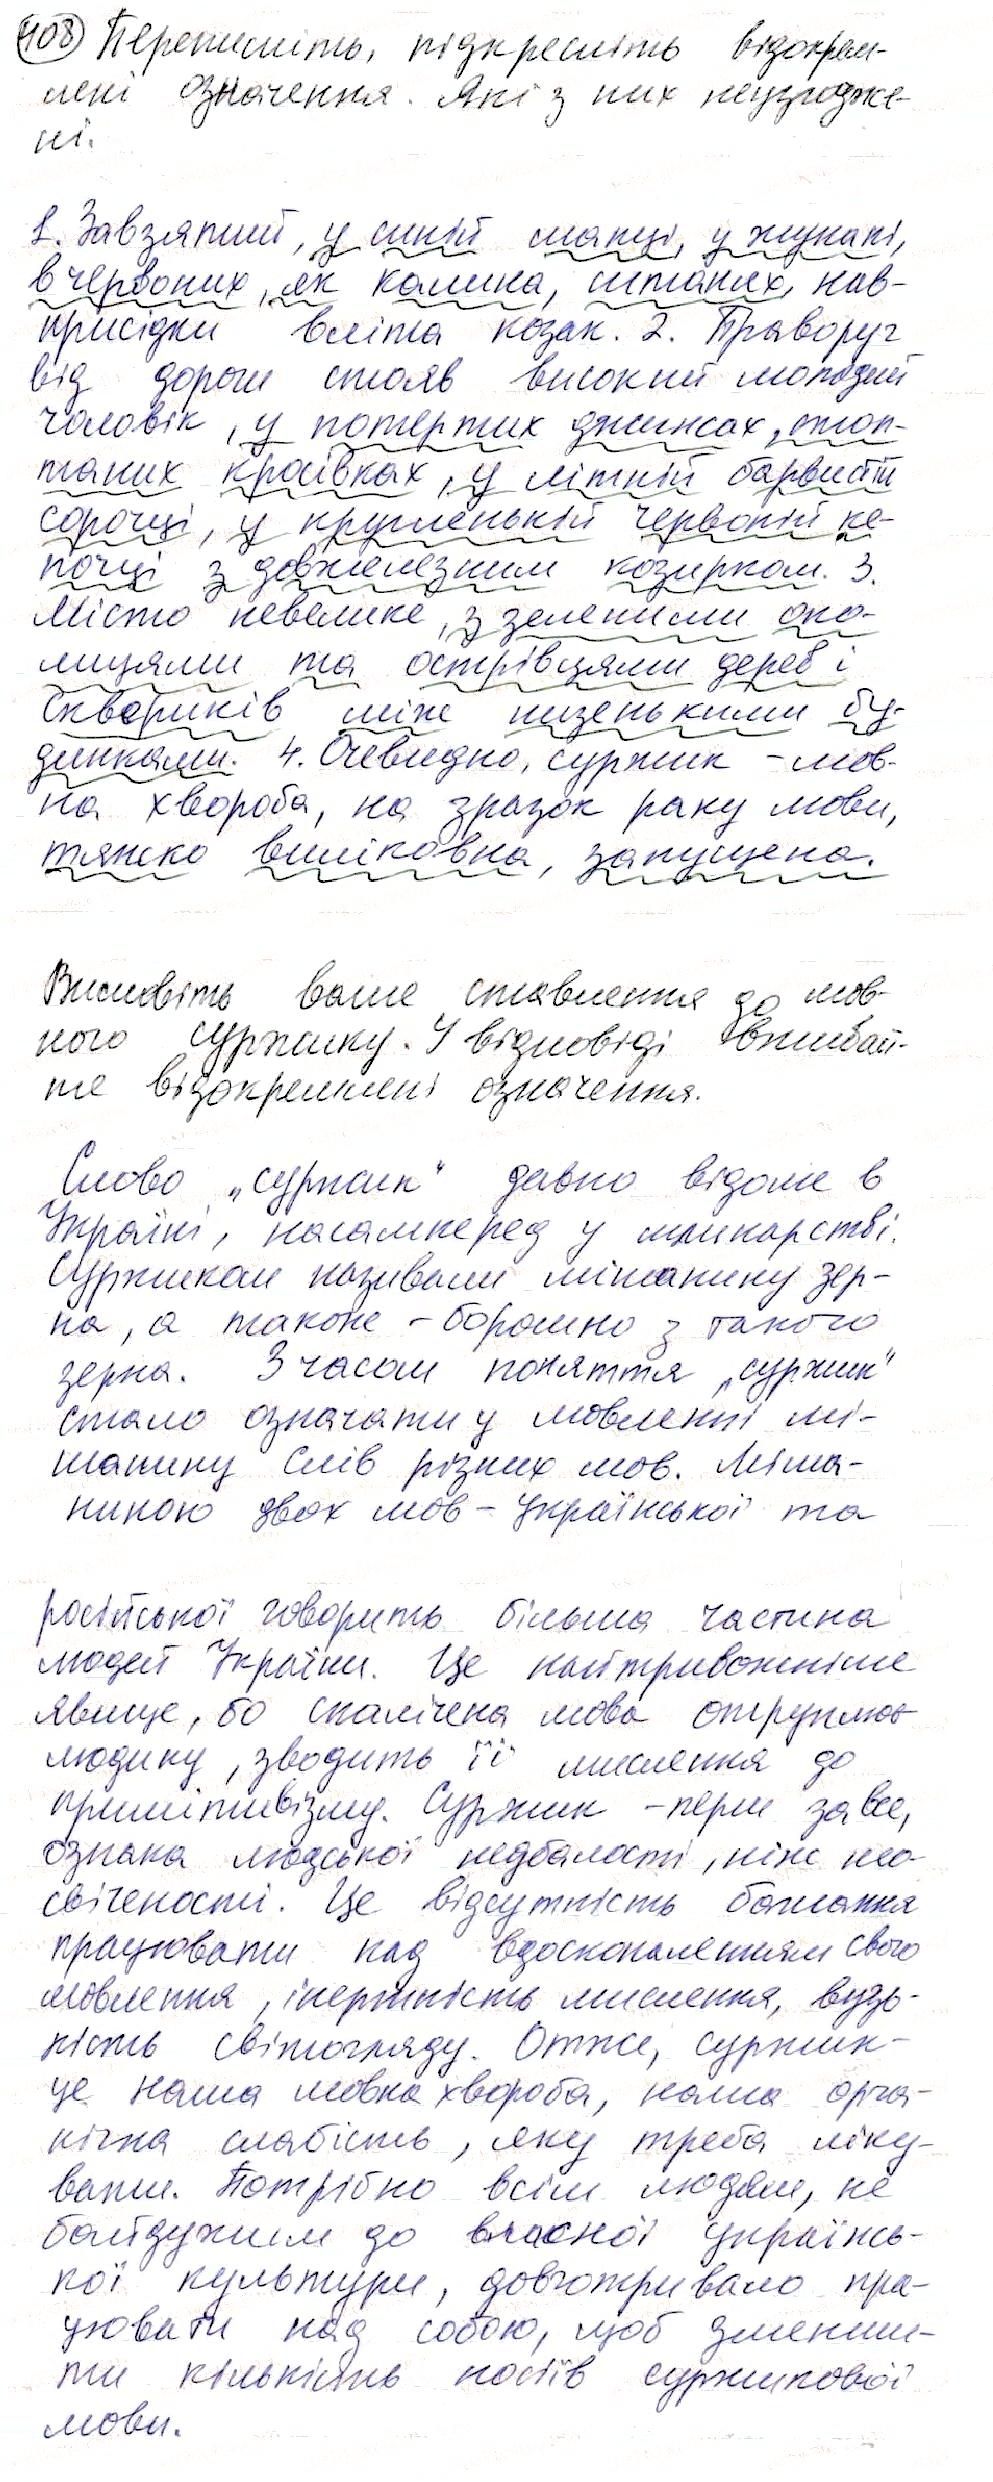 408 Перепишіть, підкресліть відокрем-
лені означення. Які з них неузгодже-
ні.
1. Завзятий, у синій шапці, у жупані,
в червоних, як калина, штанях, нав-
присідки вліта козак. 2. Праворуч
від дороги стояв високий молодий
чоловік, у потертих джинсах, стоп-
таних кросівках, у літній барвистій
сорочці, у кругленькій червоній ке-
почці з довжелезним козирком. 3.
Місто невелике, з зеленими око-
лицями та острівцями дерев і
скверників між низенькими бу-
динками. 4. Очевидно, суржик - мов-
на хвороба, на зразок раку мови,
тяжко виліковна, запущена.
Висловіть ваше ставлення до мов-
ного суржику. У відповіді вживай-
те відокремлені означення.
Слово „суржик" давно відоме в
Україні, насамперед у млинарстві.
Суржиком називали мішанину зер-
на, а також - борошно з такого
зерна. З часом поняття „суржик"
стало означати у мовленні мі-
шанину слів різних мов. Міша-
ниною двох мов - української та
російської говорить більша частина
людей України. Це найтривожніше
явище, бо скалічена мова отруплює
людину, зводить її мислення до
примітивізму. Суржик - перш за все,
ознака людської недбалості, ніж нео-
свіченості. Це відсутність бажання
працювати над вдосконаленням свого
мовлення, інертність мислення, вузь-
кість світогляду. Отже, суржик -
це наша мовна хвороба, наша орга-
нічна слабість, яку треба ліку-
вати. Потрібно всім людям, не
байдужим до власної українсь-
кої культури, довготривало пра-
цювати над собою, щоб зменши-
ти кількість носіїв суржикової
мови.